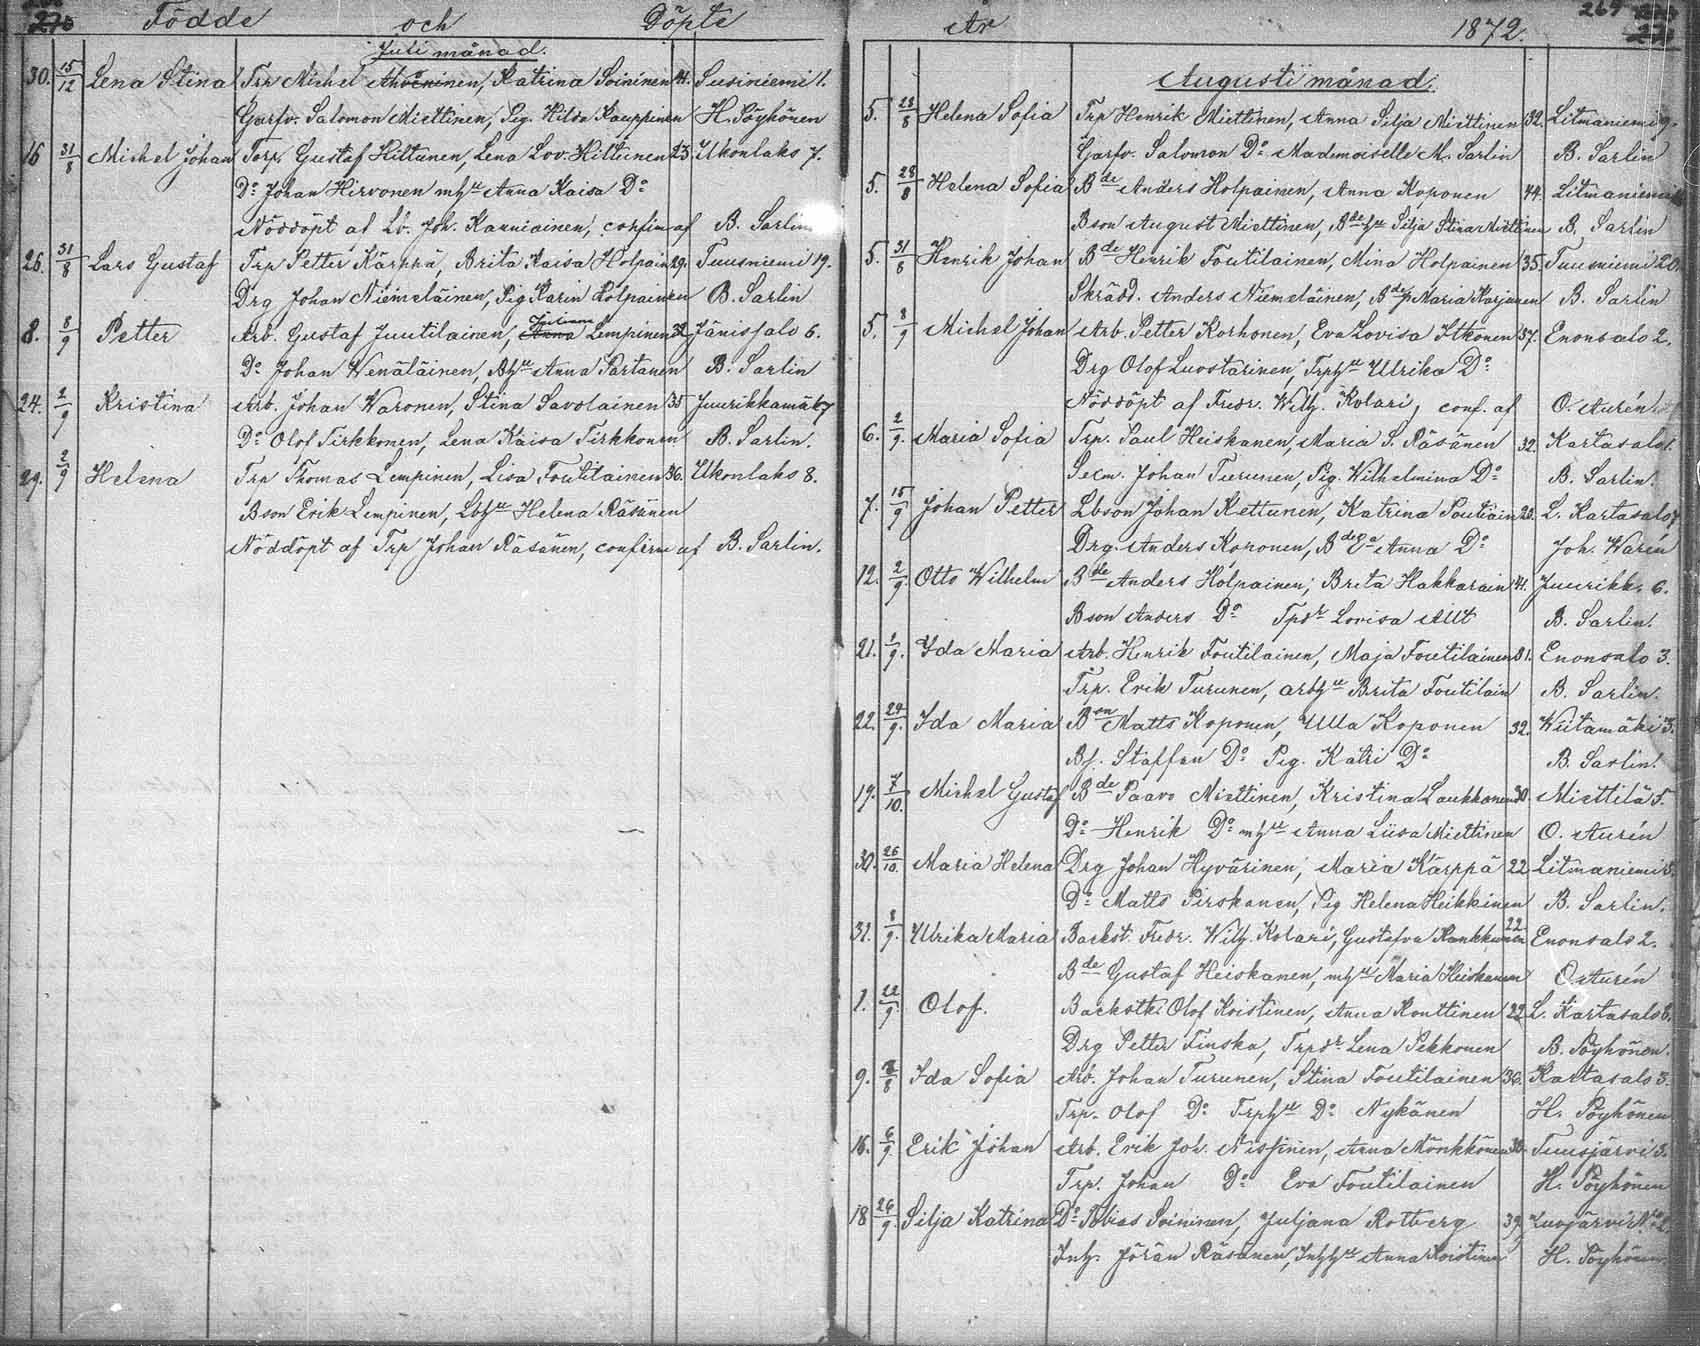 Födde och Döpte
Juli månad.
30. 15/12 Lena Stina Trp Michel Ahveninen, Katrina Soininen 41. Susiniemi 1.
Garfv. Salomon Miettinen, Pig. Hilda Kauppinen H. Pöyhönen
16 31/8 Michel Johan Torp. Gustaf Hiltunen, Lena Lov. Hiltunen 23. Ukonlaks 7.
Do Johan Hirvonen mhu Anna Kaisa Do
Nöddöpt af Lb. Joh. Kanniainen, confirm af B. Sarlin
26. 31/8 Lars Gustaf Trp Petter Kärppä, Brita Kaisa Holpain 29. Tuusniemi 19.
Drg Johan Niemeläinen, Pig Karin Holpainen B. Sarlin
8. 8/9 Petter Arb. Gustaf Juutilainen, Juliana Lempinen 32 Jänissalo 6.
Do Johan Wenäläinen, Ahu Anna Partanen B. Sarlin
24. 2/9 Kristina Arb. Johan Waronen, Stina Savolainen 35 Juurikkamäk 7
Do Olof Tirkkonen, Lena Kaisa Tirkkonen B. Sarlin.
29. 2/9 Helena Trp Thomas Lempinen, Lisa Foutilainen 36. Ukonlaks 8.
Bson Erik Lempinen, Lbhu Helena Räsänen
Nöddöpt af Trp Johan Räsänen, confirm af B. Sarlin.
År 1872. 269
Augusti månad.
5. 28/8 Helena Sofia Trp Henrik Miettinen, Anna Silja Miettinen 32. Litmaniemi 9.
Garfv. Salomon Do Mademoiselle M. Sarlin B. Sarlin
5. 28/8 Helena Sofia Bde Anders Holpainen, Anna Koponen 44. Litmaniemi
Bson August Miettinen, Bdehu Silja Stina Miettinen B. Sarlin
5. 31/8 Henrik Johan Bde Henrik Foutilainen, Mina Holpainen 35. Tuusniemi 20.
Skrädd. Anders Niemeläinen, Maria Karjunen B. Sarlin
5. 8/9 Michel Johan Arb. Petter Korhonen, Eva Lovisa Itkonen 37. Enonsalo 2.
Drg Olof Luostarinen, Trphu Ulrika Do
Nöddöpt af Fredr. Wilh. Kolari, conf. af O. Aurén.
6. 2/9. Maria Sofia Trp. Paul Heiskanen, Maria S. Räsänen 32. Kartasalo 1.
Sexm. Johan Turunen, Pig. Wilhelmina Do B. Sarlin.
7. 15/9 Johan Petter Lbson Johan Kettunen, Katrina Poutiäin 23. L. Kartasalo 7
Drg. Anders Koponen, Anna Do Joh. Warén
12. 2/9. Otto Wilhelm Bde Anders Holpainen, Brita Hakkarain 41. Juurikk. 6.
Bson Anders Do Tpdr Lovisa Allt B. Sarlin.
21. 1/9. Ida Maria Arb. Henrik Foutilainen, Maja Foutilainen 31. Enonsalo 3.
Trp. Erik Turunen, arbhu Brita Foutilain B. Sarlin.
22. 29/9. Ida Maria Bon Matts Koponen, Ulla Koponen 32. Wiitamäki 3.
Bf. Staffan Do Pig. Katri Do B. Sarlin.
19. 7/10. Michel Gustaf Bde Paavo Miettinen, Kristina Laukkanen 30. Miettilä 5.
Do Henrik Do mhu Anna Liisa Miettinen O. Aurén
30. 26/10. Maria Helena Drg Johan Hyvärinen, Maria Kärppä 22. Litmaniemi 5.
Do Matts Pirskanen, Pig Helena Heikkinen B. Sarlin.
31. 8/9. Ulrika Maria Backst. Fredr. Wilh. Kolari, Gustafva Rankkunen 22 Enonsalo 2.
Bde Gustaf Heiskanen, mhu Maria Heiskanen O. Aurén
1. 22/9 Olof. Backstk. Olof Koistinen, Anna Konttinen 22 L. Kartasalo 6.
Drg Petter Finska, Trpdr Lena Pekkonen B. Pöyhönen.
9. Ida Sofia Arb. Johan Turunen, Stina Foutilainen 36. Kartasalo 3.
Trp. Olof Do Trphu Do Nykänen H. Pöyhönen
16. 6/9 Erik Johan Arb. Erik Joh. Nissinen, Anna Mönkkönen 30. Tuusjärvi 3.
Trp. Johan Do Eva Foutilainen H. Pöyhönen
18 26/9. Silja Katrina Do Tobias Soininen, Juljana Rotberg 39.
Inh. Jöran Räsänen, Inhhu Anna Koistinen H. Pöyhönen.